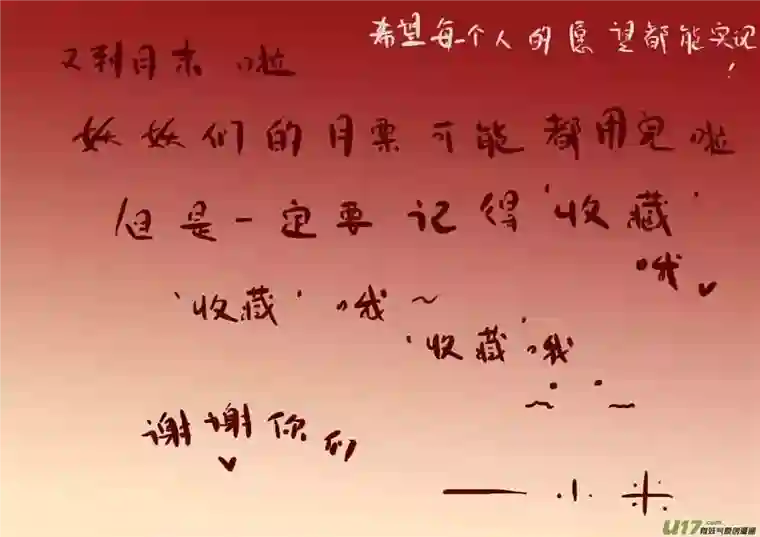 希望每个人的愿望都能实现!
又到月末啦
妖妖们的月票可能都用完啦
但是一定要记得'收藏'
哦
'收藏'哦~
'收藏'哦
谢谢你们
一小米
U17.com
有妖气原创漫画